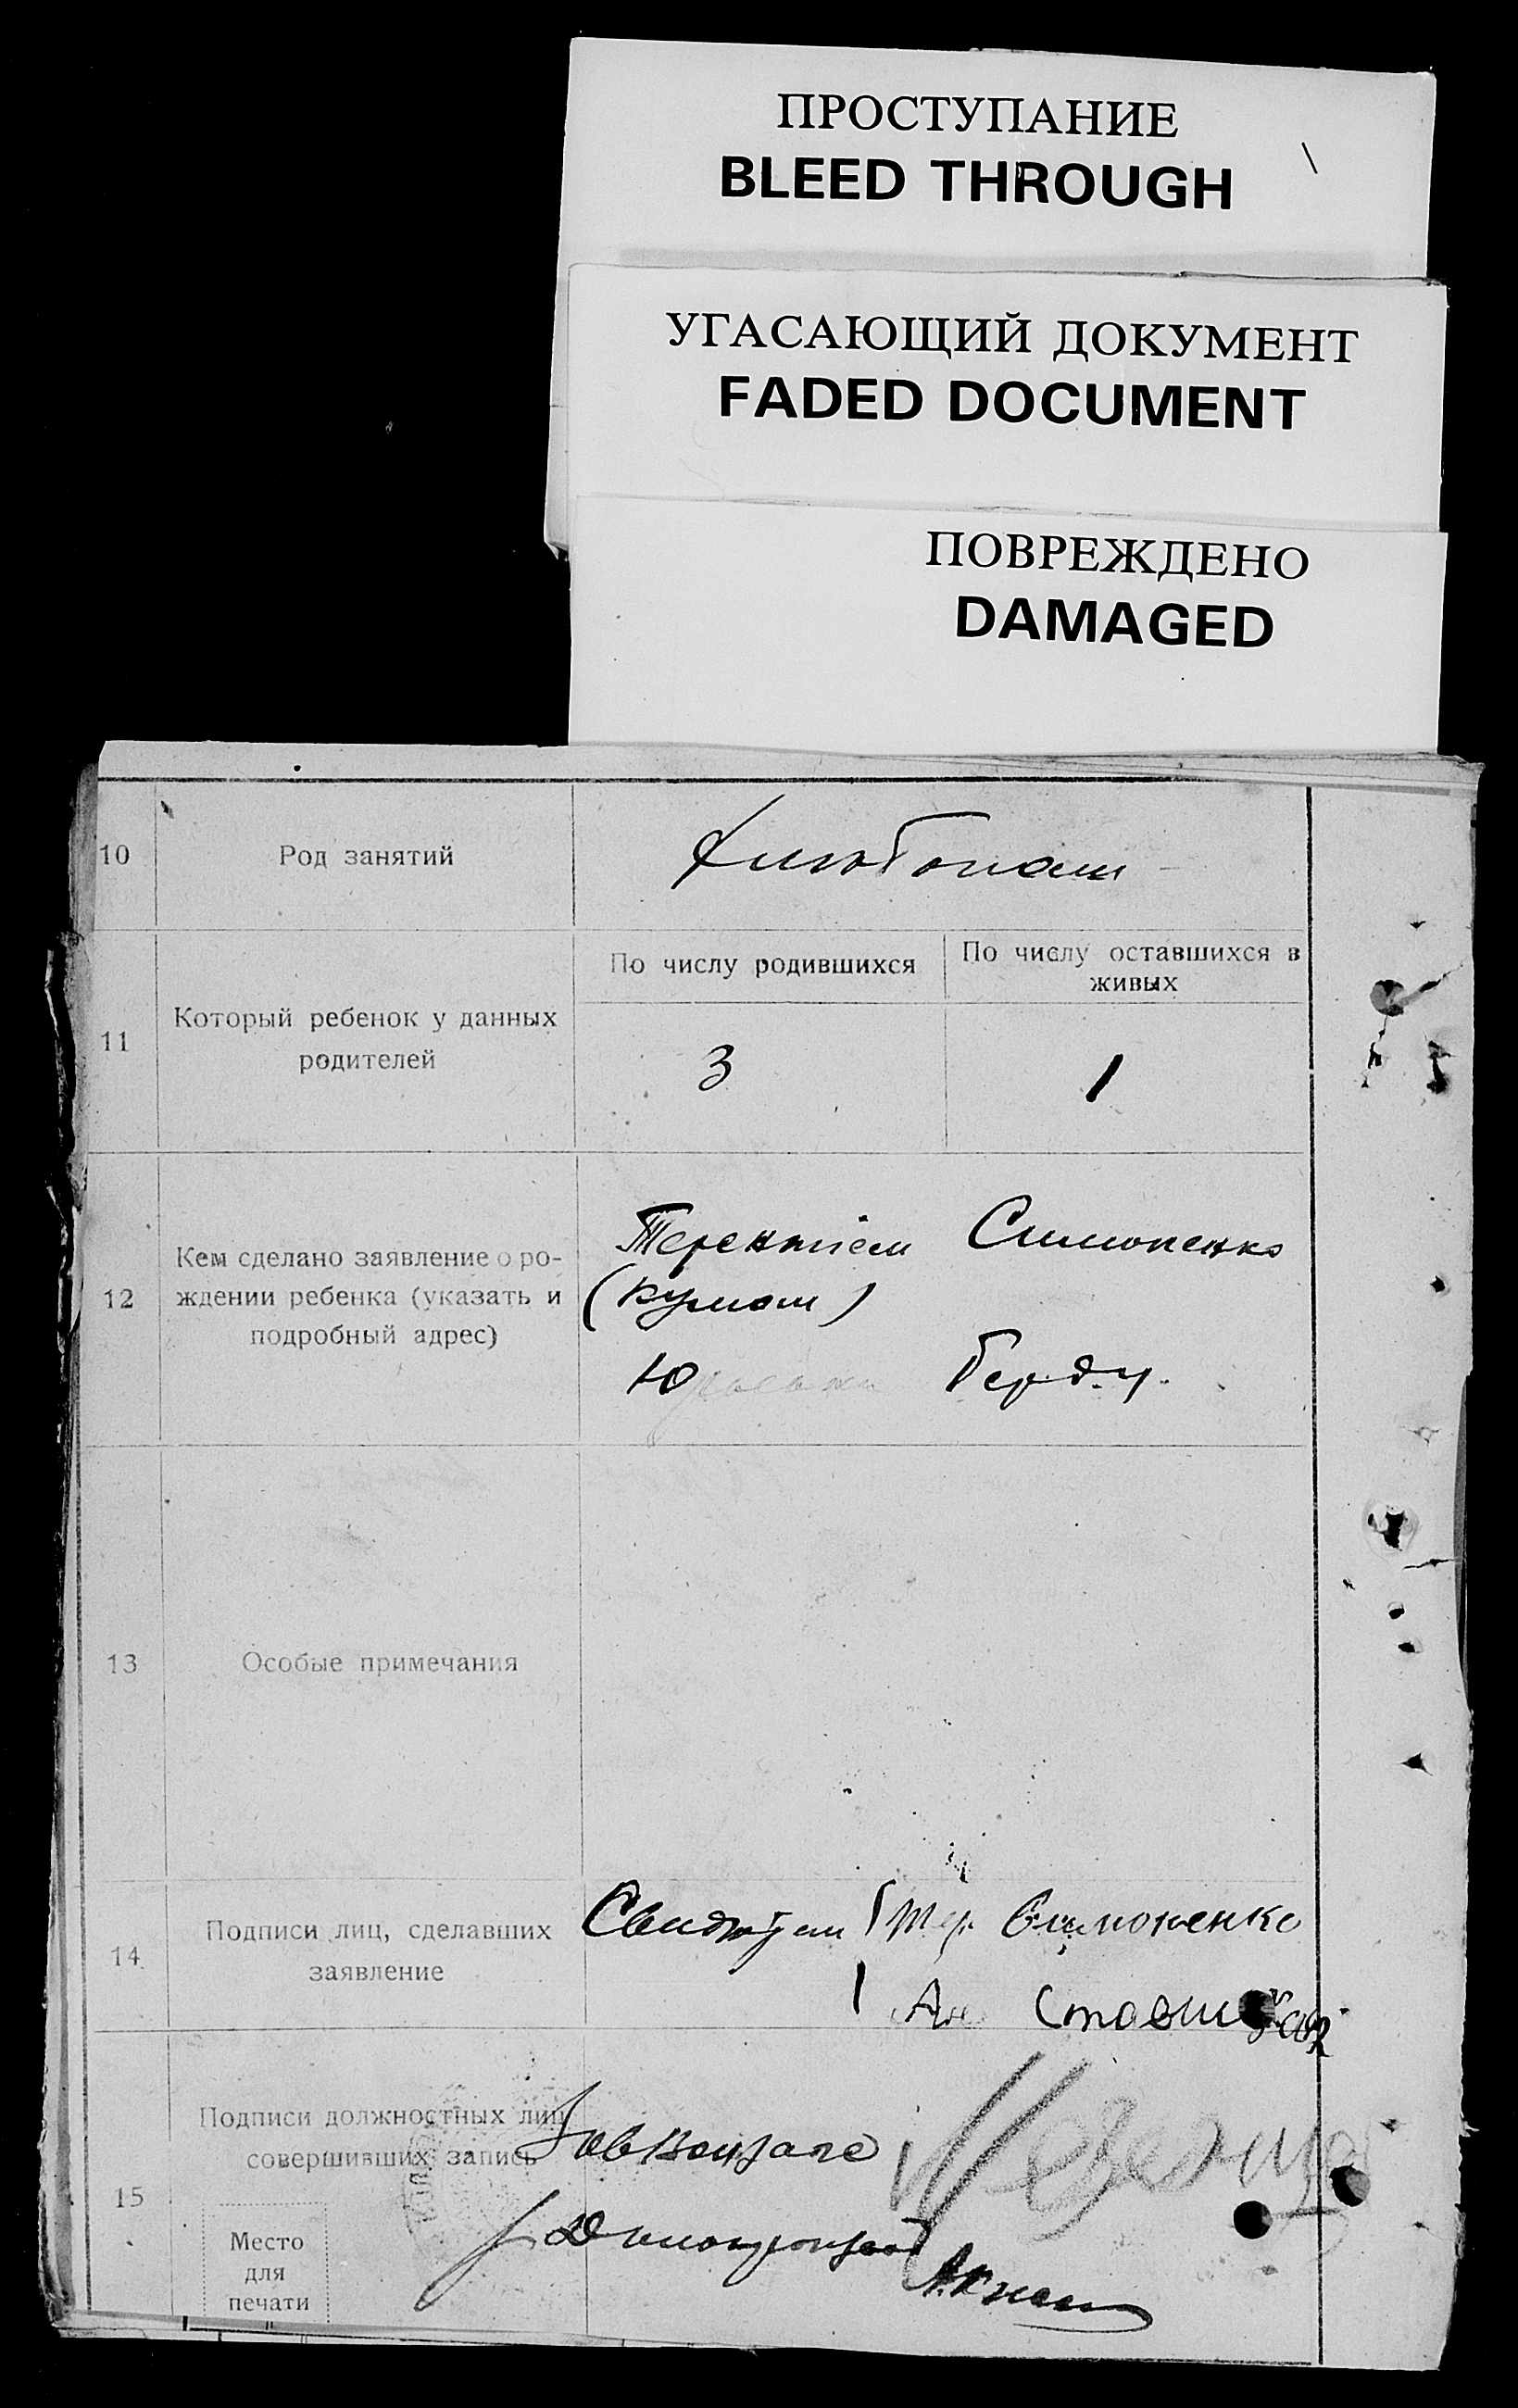 ПРОСТУПАНИЕ
BLEED THROUGH
УГАСАЮЩИЙ ДОКУМЕНТ
FADED DOCUMENT
ПОВРЕЖДЕНО
DAMAGED
10
Род занятий
11
Который ребенок у данных
родителей
По числу родившихся
По числу оставшихся в
живых
3
1
12
Кем сделано заявление о ро-
ждении ребенка (указать и
подробный адрес)
Терентієм Симоненко
(кумом)
13
Особые примечания
14
Подписи лиц, сделавших
заявление
Тер Симоненко
15
Подписи должностных лиц
совершивших запись
Место
для
печати